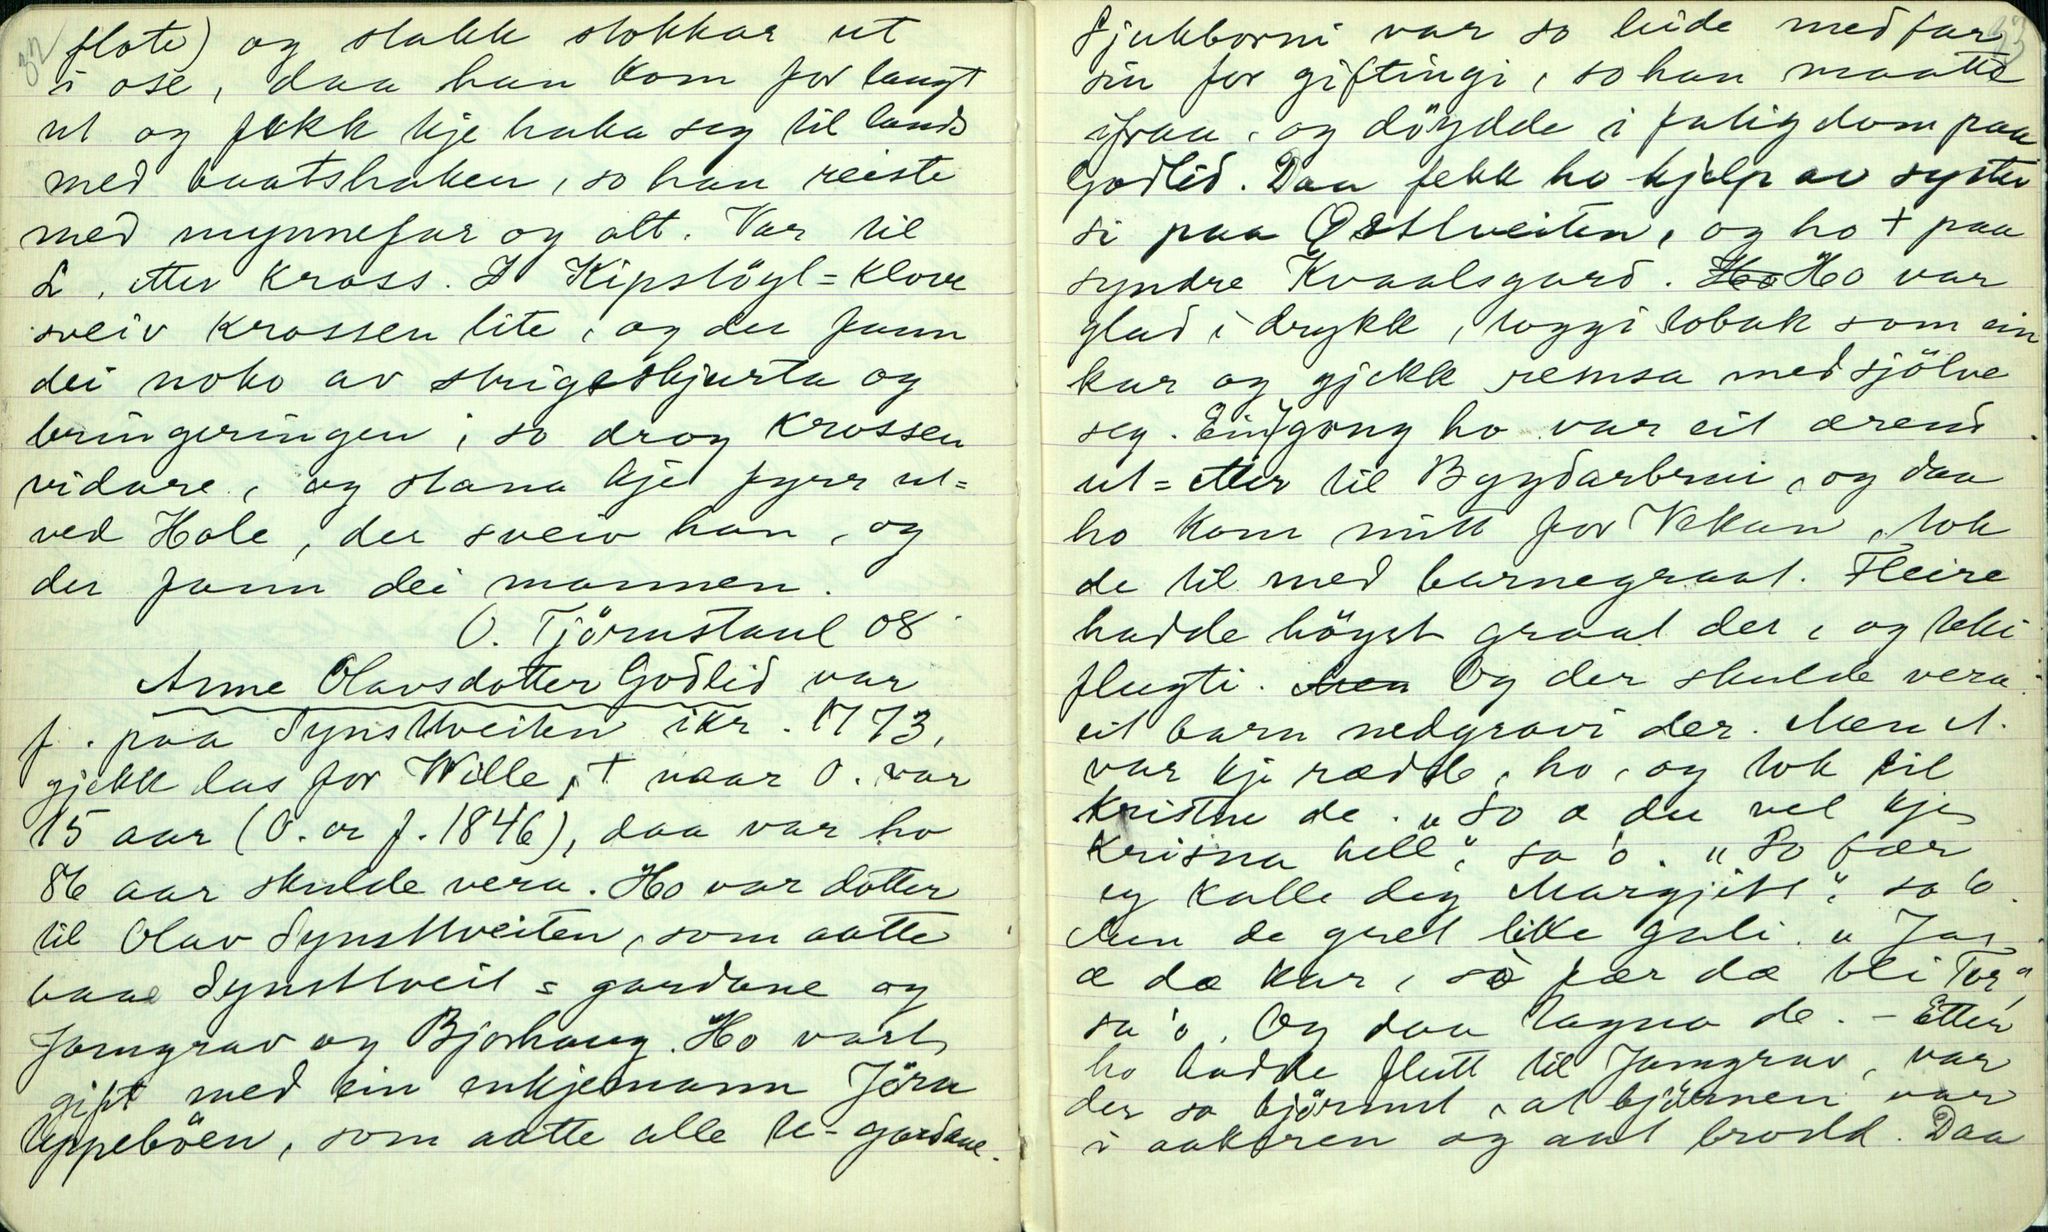 32
flote) og stakk stokkar ut
i ose, daa han kom for langt
ut og fekk kje haka seg til lands
med baatshaken, so han reiste
med mynnefar og alt. Var til
L. etter kross. I Kipsløyl=klove
sveiv krossen lite, og der fann
dei noko av strigeskjurta og
bringeringen, so drog krossen
vidare, og stana kje fyrr ut=
ved Hole, der sveiv han, og
der fann dei mannen.
O. Tjörnstaul 08
Anne Olavsdotter Godlid var
f. paa Synstveiten ikr. 1773,
gjekk las for Wille, + naar O. var
15 aar (O. er f. 1846), daa var ho
86 aar skulde vera. Ho var dotter
til Olav Synstveiten, som aatte
baae Synstveit = gardane og
Jamgrav og Bjorhaug. Ho vart
gift med ein enkjemann Jörn
Uppeböen, som aatte alle U-gardane.
33
Sjukborni var so leide med far
sin for giftingi, so han maatte
ifraa, og döydde i fatigdom paa
Godlid. Daa fekk ho hjelp av syster
si paa Östtveiten, og ho + paa
syndre Kvaalsgard. Ho Ho var
glad i drykk, toggi tobak som ein
kar og gjekk remsa med sjölve
seg. Ein gong ho var eit ærend
ut=etter til Bygdarbrui, og daa
ho kom mitt for Vekan, tok
de til med barnegraat. Fleire
hadde höyrt graat der, og teki
flugti. Men Og der skulde vera
eit barn nedgravi der. Men A.
var kje rædde, ho, og tok til
kristne de. "So æ du vel kje
krisna hell", sa 'o. "So fær
eg kalle deg Margjitt", sa 'o.
Men de gret like gali. "Jas
æ dæ kar, så fær dæ bli Tor",
sa 'o. Og daa tagna de. – Etter
ho hadde flutt til Jamgrav, var
der so björnut, at bjönnen var
i aakeren og aat brodd. Daa